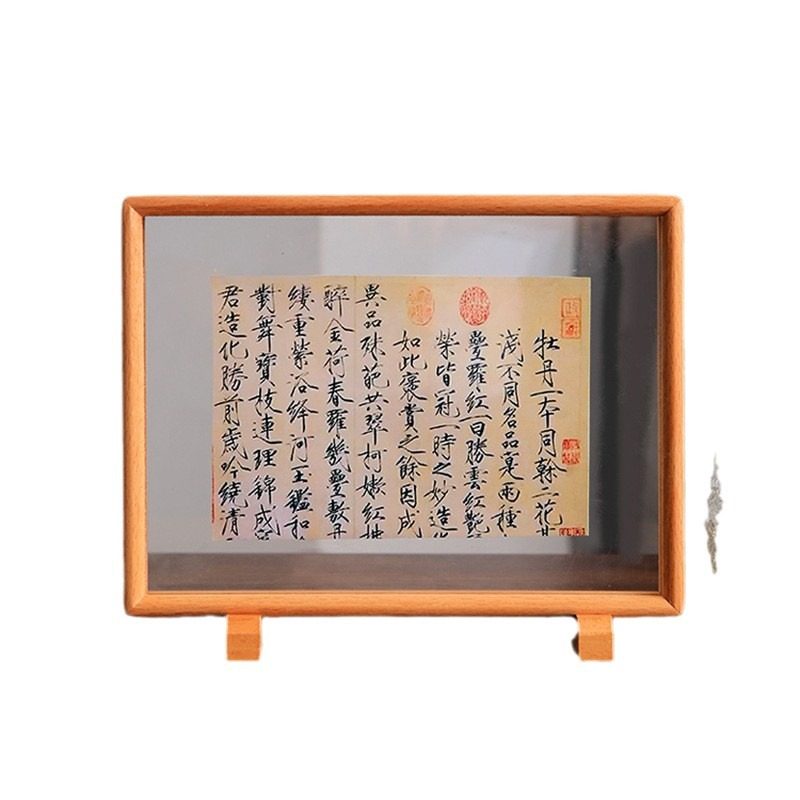 牡丹一本同榦二花
淺不同名品寔兩種
疊羅紅一曰勝雲紅艷
榮皆冠一時之妙造
如此褒賞之餘因成
異品殊葩共翠柯嫩紅
醉金荷春羅幾疊敷丹
縷重縈浴絳河玉鑑和
對舞寶枝連理錦成
君造化勝前歲吟繞清